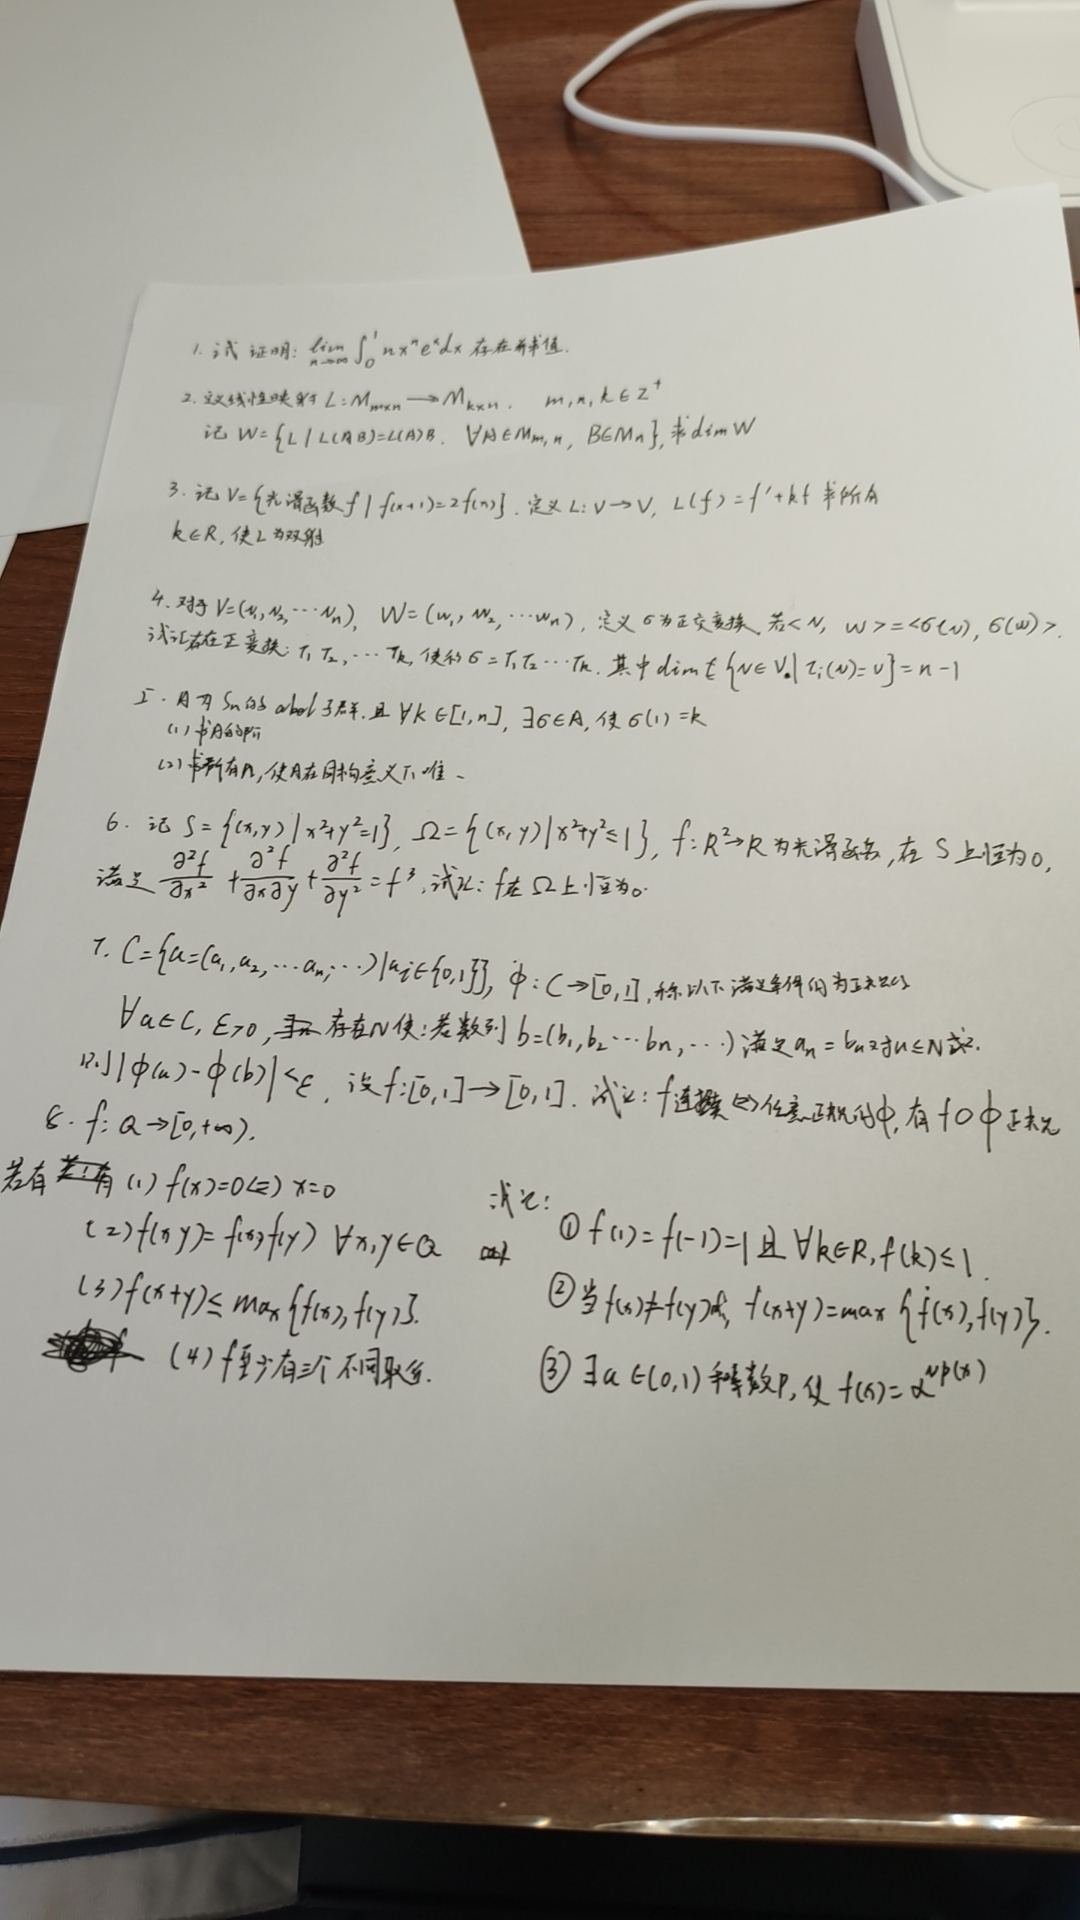 1. 试证明: lim n→∞ ∫₀¹ nxⁿeˣdx 存在并求值.
2. 定义线性映射 L: Mm×n → Mk×n. m, n, k ∈ Z⁺
记 W={L | L(AB)=L(A)B. ∀A∈Mm,n, B∈Mn}, 求dimW
3. 记 V={光滑函数f | f(x+1)=2f(x)}. 定义 L: V→V, L(f)=f'+kf 求所有
k∈R, 使L为双射
4. 对于 V=(v₁,v₂,…vn), W=(w₁,w₂,…wn), 定义σ为正交变换 若<v, w>=<σ(v), σ(w)>.
试证存在正变换: τ₁ τ₂,…τk, 使得σ=τ₁τ₂…τk. 其中dim{v∈V | τi(v)=v}=n-1
5. A为Sn的abel子群, 且∀k∈[1,n], ∃σ∈A, 使σ(1)=k
(1) 求A的阶
(2) 求所有n, 使A在同构意义下唯一
6. 记 S={(x,y) | x²+y²=1}, Ω={(x,y) | x²+y²≤1}, f: R²→R为光滑函数, 在S上恒为0,
满足 ∂²f/∂x² + ∂²f/∂x∂y + ∂²f/∂y² = f³, 试证: f在Ω上恒为0.
7. C={a=(a₁,a₂,…an,…) | ai∈{0,1}}, φ: C→[0,1], 称以下满足条件的为正规的
∀a∈C, ε>0, 存在N使: 若数列b=(b₁,b₂…bn,…) 满足an=bn对n≤N成立.
则|φ(a)-φ(b)|<ε. 设f:[0,1]→[0,1]. 试证: f连续⇔任意正规的φ, 有f∘φ正规
8. f: Q→[0,+∞).
若有 (1) f(x)=0⇔x=0
(2) f(xy)=f(x)f(y) ∀x,y∈Q
(3) f(x+y)≤max{f(x),f(y)}.
(4) f至少有三个不同取值.
试证:
① f(1)=f(-1)=1且∀k∈R, f(k)≤1.
② 当f(x)≠f(y)时, f(x+y)=max{f(x),f(y)}.
③ ∃a∈(0,1)和素数P, 使f(x)=α^Np(x)